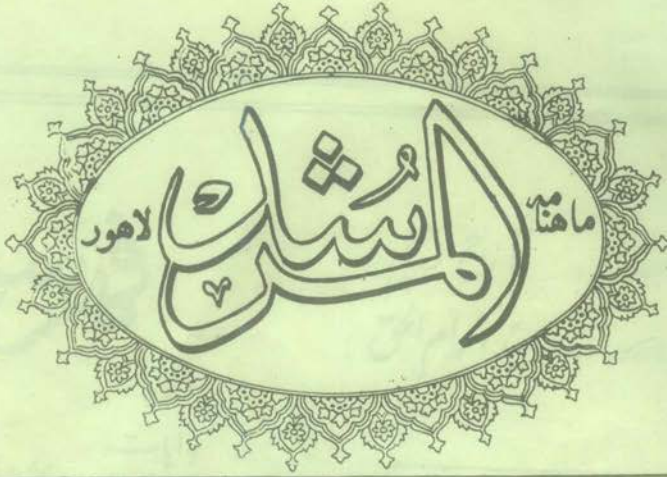 ماهنامہ
المرشد
لاهور